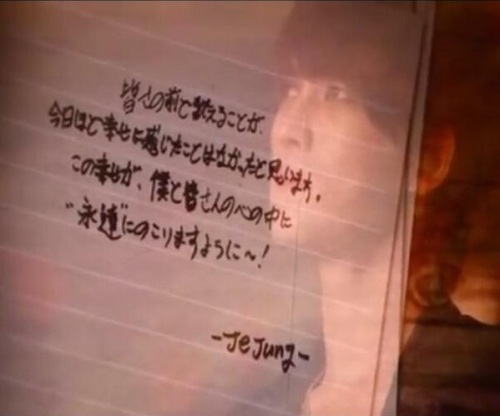 皆さの前で歌えることが、
今日ほど幸せに感じたことはなかったと思います。
この幸せが、僕と皆さんの心の中に
“永遠”にのこりますように〜!
-Jejung-